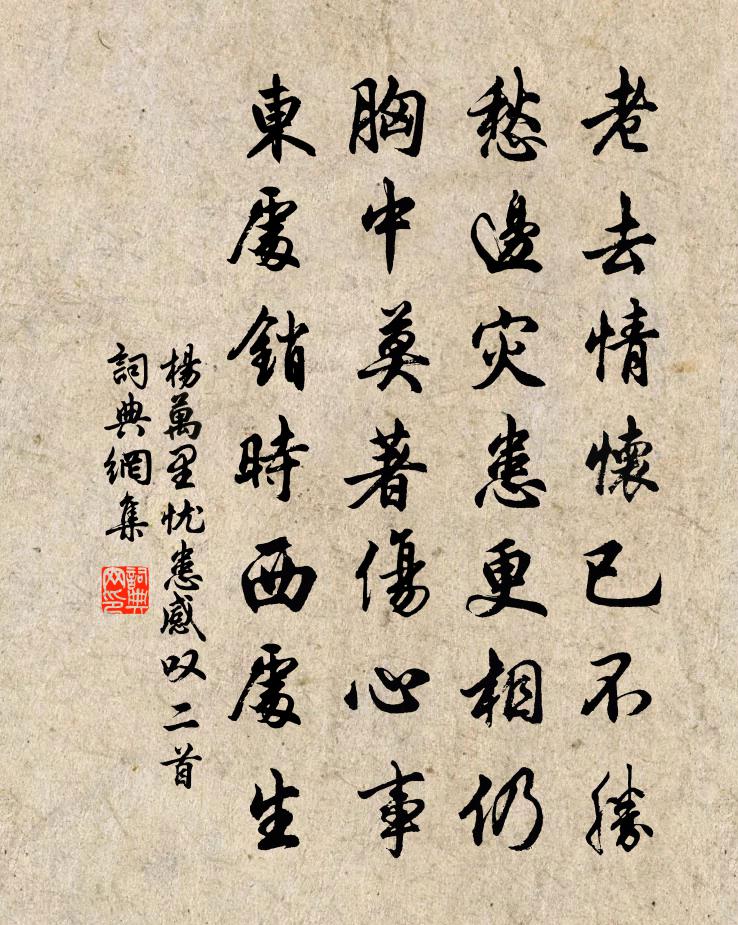 老去情懷已不勝
愁邊災患更相仍
胸中莫著傷心事
東處銷時西處生
楊萬里忧患感叹二首
詞典網集
詞典
网印